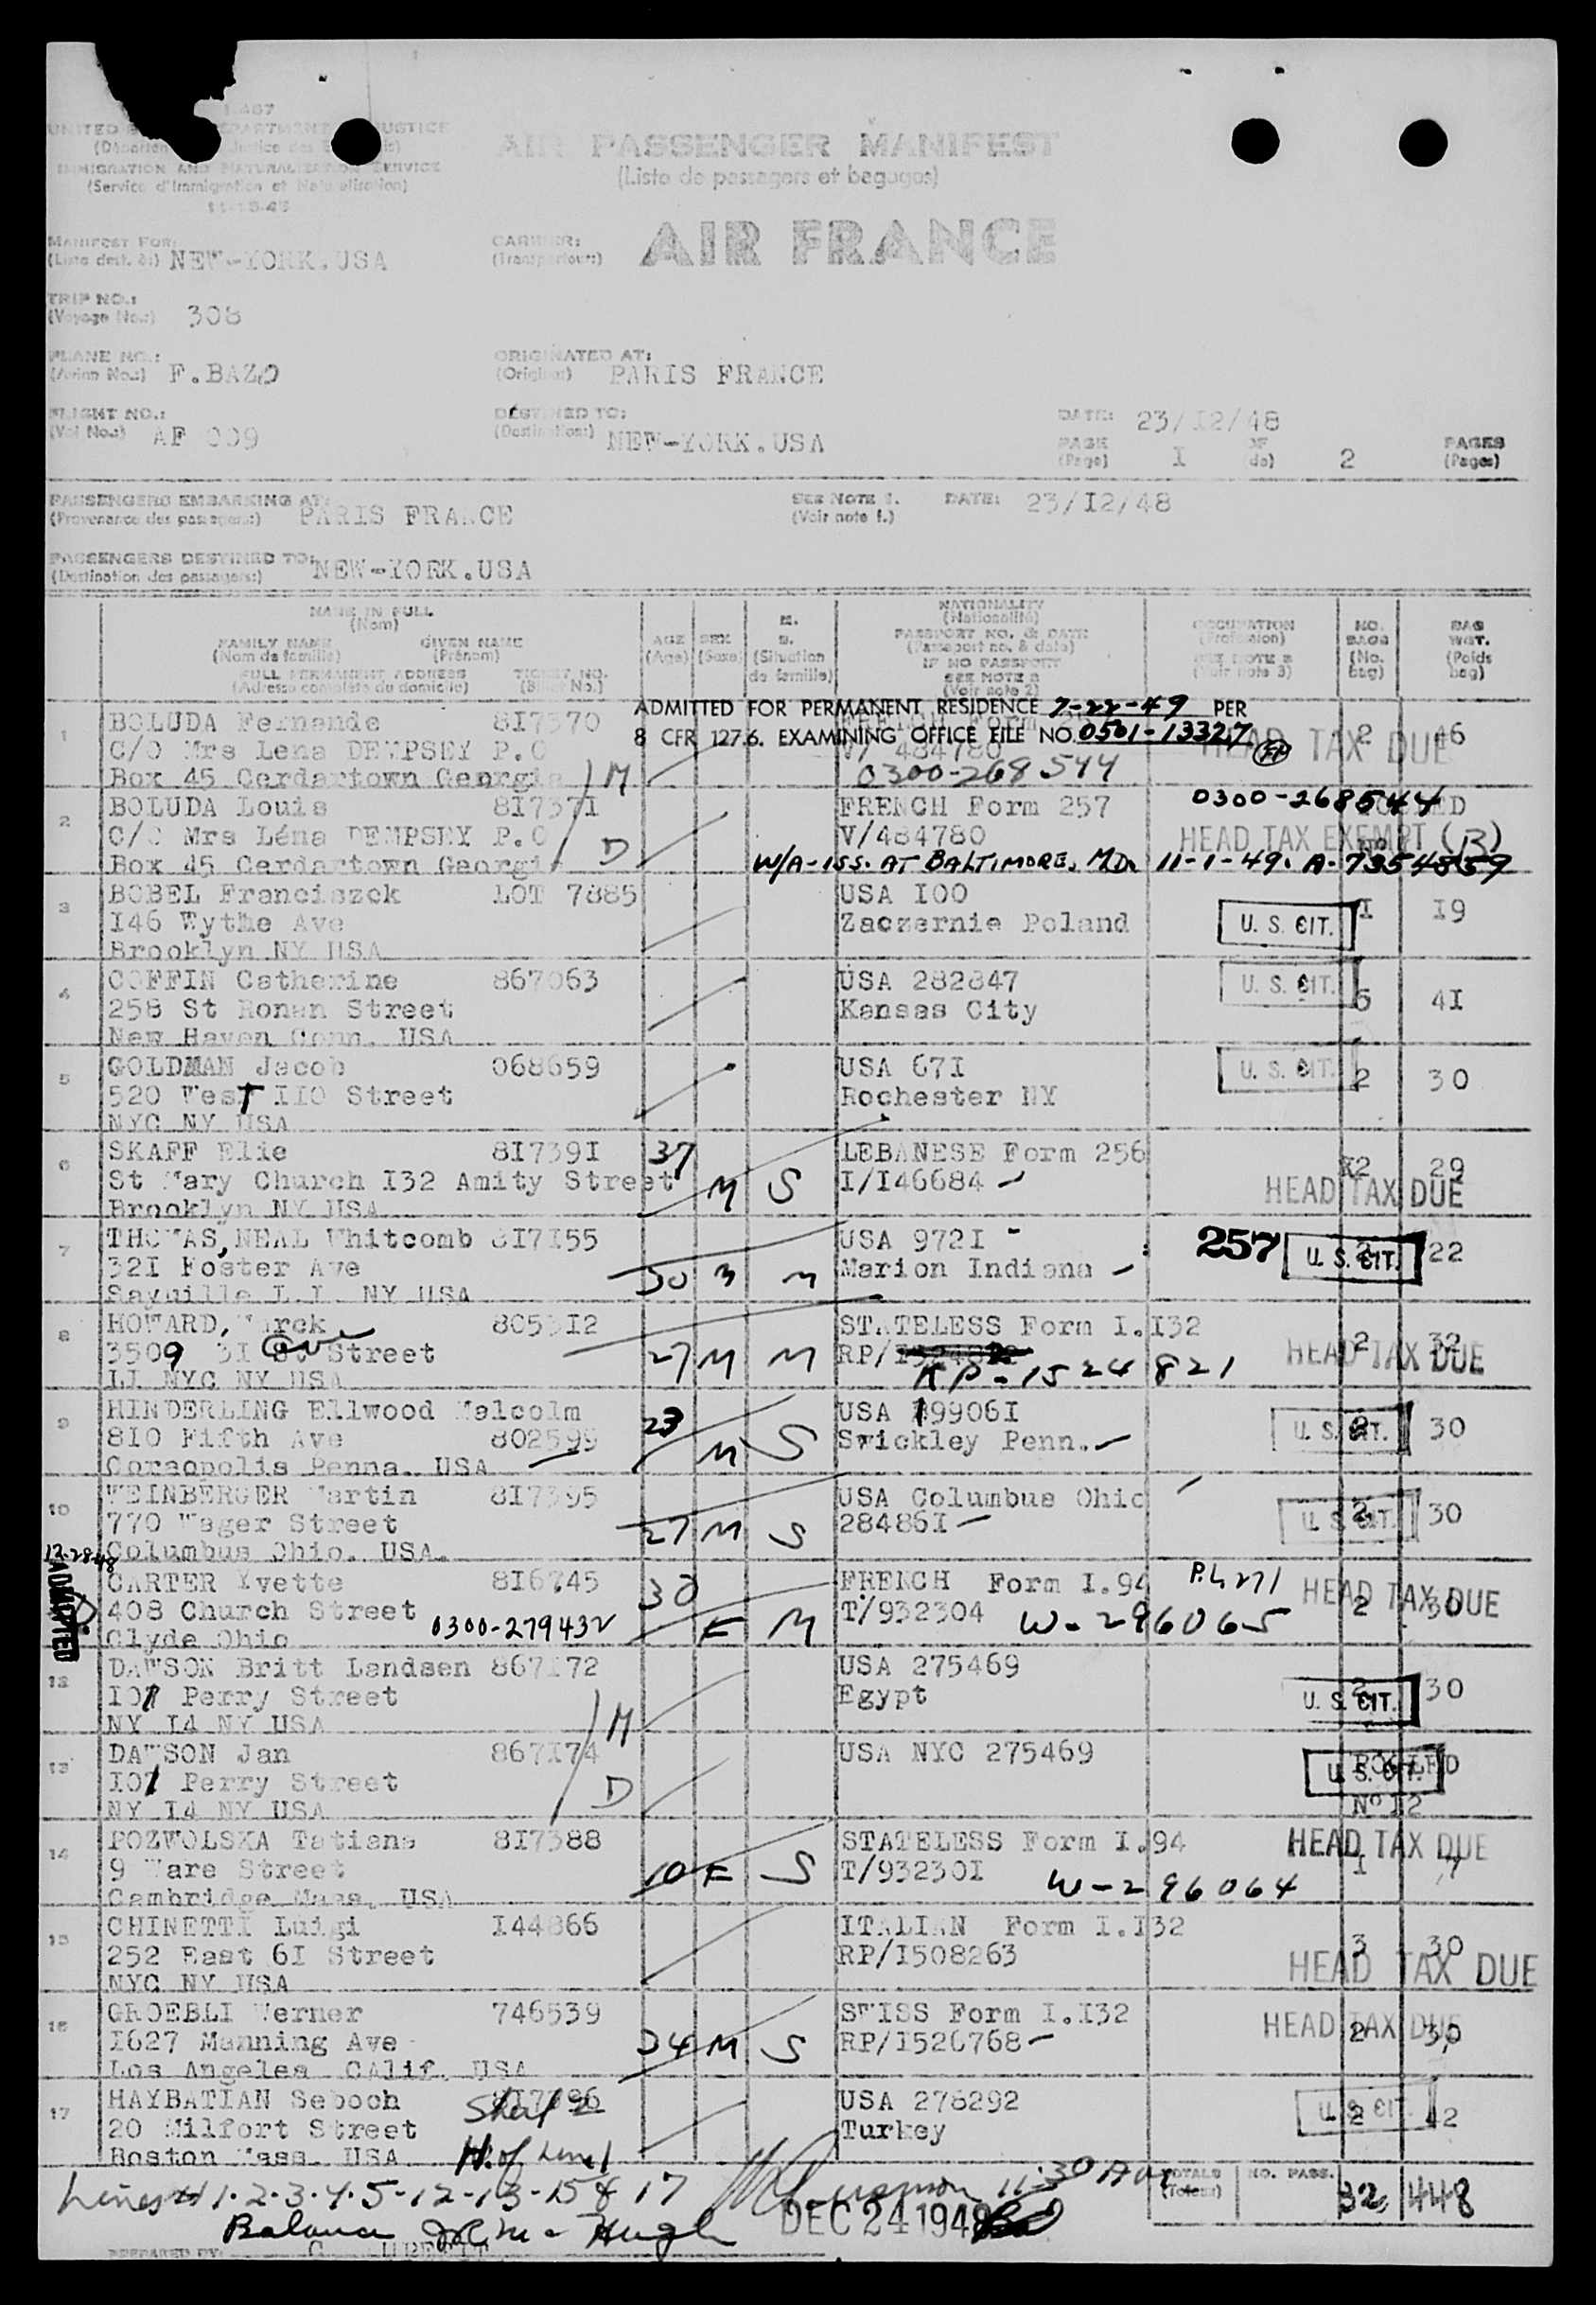 I-467
UNITED STATES DEPARTMENT OF JUSTICE
IMMIGRATION AND NATURALIZATION SERVICE
(Service d'Immigration et Naturalisation)
11-15-45
AIR PASSENGER MANIFEST
(Liste de passagers et bagages)
MANIFEST FOR:
(Liste dest. à:) NEW-YORK.USA
CARRIER:
(Transporteur:)
AIR FRANCE
TRIP NO.:
(Voyage No.:) 308
PLANE NO.:
(Avion No.:) F.BAZO
ORIGINATED AT:
(Origine:) PARIS FRANCE
FLIGHT NO.:
(Vol No.:) AF 009
DESTINED TO:
(Destination:) NEW-YORK.USA
DATE: 23/I2/48
PAGE I OF 2 PAGES
(Page) de) (Pages)
PASSENGERS EMBARKING AT:
(Provenance des passagers:) PARIS FRANCE
SEE NOTE 1.
(Voir note 1.)
DATE: 23/I2/48
PASSENGERS DESTINED TO:
(Destination des passagers:) NEW-YORK.USA
NAME IN FULL
(Nom)
FAMILY NAME GIVEN NAME
(Nom de famille) (Prénom)
FULL PERMANENT ADDRESS TICKET NO.
(Adresse complète du domicile) (Billet No.)
AGE
(Age)
SEX
(Sexe)
M.
S.
(Situation
de famille)
NATIONALITY
(Nationalité)
PASSPORT NO. & DATE
(Passeport no. & date)
IF NO PASSPORT
SEE NOTE 2
(Voir note 2)
OCCUPATION
(Profession)
SEE NOTE 3
(Voir note 3)
NO.
BAGS
(No.
bag)
BAG
WGT.
(Poids
bag)
ADMITTED FOR PERMANENT RESIDENCE 7-22-49 PER
8 CFR 127.6. EXAMINING OFFICE FILE NO. 0501-13327
1 BOLUDA Fernande 8I7370 2 46
C/O Mrs Lena DEMPSEY P.O V/ 484780 HEAD TAX DUE
Box 45 Cerdartown Georgia M 0300-268544
2 BOLUDA Louis 8I737I FRENCH Form 257 0300-268544
C/O Mrs Léna DEMPSEY P.O V/484780 HEAD TAX EXEMPT (B)
Box 45 Cerdartown Georgia D W/A-ISS. AT BALTIMORE, MD. 11-1-49. A-7354859
3 BOBEL Franciszek LOT 7885 USA I00 U. S. CIT. I I9
I46 Wythe Ave Zaczernie Poland
Brooklyn NY USA
4 COFFIN Catherine 867063 USA 282847 U. S. CIT. 6 4I
258 St Ronan Street Kansas City
New Haven Conn. USA
5 GOLDMAN Jacob 068659 USA 67I U. S. CIT. 2 30
520 West II0 Street Rochester NY
NYC NY USA
6 SKAFF Elie 8I739I 37 M S LEBANESE Form 256 2 29
St Mary Church I32 Amity Street I/I46684 HEAD TAX DUE
Brooklyn NY USA
7 THOMAS, NEAL Whitcomb 8I7I55 30 M M USA 972I 257 U. S. CIT. 2 22
32I Foster Ave Marion Indiana
Sayville L.I. NY USA
8 HOWARD, Marck 8053I2 27 M M STATELESS Form I.I32 2 32
3509 3I St Street RP/ RP-1524821 HEAD TAX DUE
LI NYC NY USA
9 HINDERLING Ellwood Malcolm 23 M S USA 19906I U. S. CIT. 2 30
8I0 Fifth Ave 802599 Swickley Penn.
Coraopolis Penna. USA
10 WEINBERGER Martin 8I7395 27 M S USA Columbus Ohio U. S. CIT. 2 30
770 Wager Street 28486I
Columbus Ohio. USA.
12-28-48
ADMITTED
CARTER Yvette 8I6745 30 F M FRENCH Form I.94 P.L 271 HEAD TAX DUE
408 Church Street 0300-279432 T/932304 W-296065 2 30
Clyde Ohio
12 DAWSON Britt Landsen 867I72 USA 275469 2 30
I07 Perry Street Egypt U. S. CIT.
NY I4 NY USA M
13 DAWSON Jan 867I74 USA NYC 275469 POOLED
I07 Perry Street D U. S. CIT.
NY I4 NY USA N° I2
14 POZWOLSKA Tatiana 8I7388 10 F S STATELESS Form I.94 HEAD TAX DUE
9 Ware Street T/93230I W-296064 I 7
Cambridge Mass. USA
15 CHINETTI Luigi I44866 ITALIAN Form I.I32 3 30
252 East 6I Street RP/I508263 HEAD TAX DUE
NYC NY USA
16 GROEBLI Werner 746539 34 M S SWISS Form I.I32 HEAD TAX DUE
I627 Manning Ave RP/I526768 2 30
Los Angeles CAlif. USA
17 HAYBATIAN Seboch USA 278292 U. S. CIT. 2 42
20 Milfort Street Turkey
Boston Mass. USA
Lines # 1-2-3-4-5-12-13-15 & 17 11:30 AM
TOTALS NO. PASS. 32 448
Balance
DEC 24 1948
PREPARED BY: